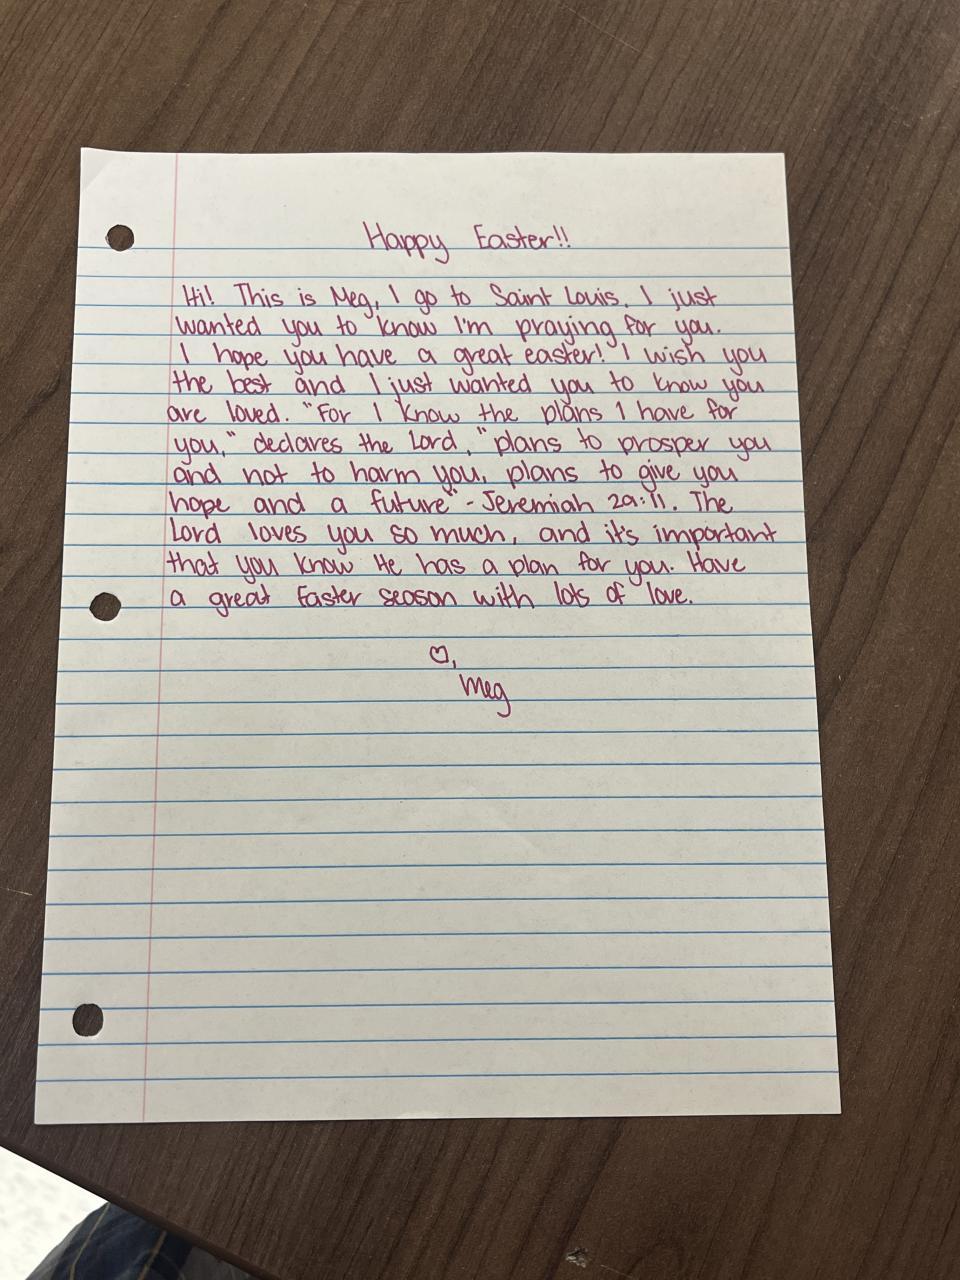 Happy Easter!!
Hi! This is Meg, I go to Saint Louis. I just
wanted you to know I'm praying for you.
I hope you have a great easter! I wish you
the best and I just wanted you to know you
are loved. "For I know the plans I have for
you," declares the Lord, "plans to prosper you
and not to harm you, plans to give you
hope and a future" - Jeremiah 29:11. The
Lord loves you so much, and it's important
that you know He has a plan for you. Have
a great Easter season with lots of love.
♡,
Meg